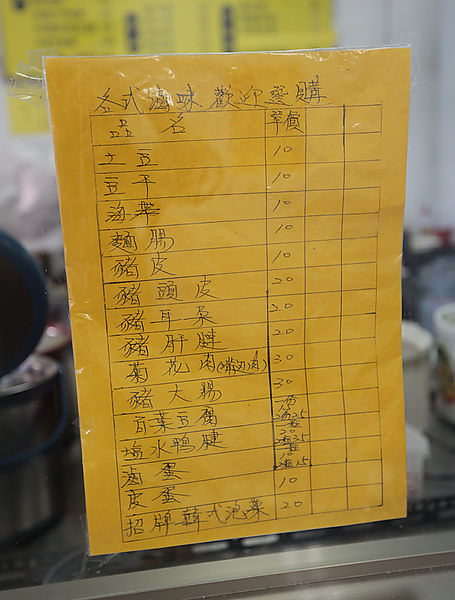 各式滷味 歡迎選購
品 名 單價
土豆 10
豆干 10
海菜 10
麵腸 10
豬皮 10
豬頭皮 20
豬耳朵 20
豬肝腱 20
菊花肉(嘴边肉) 30
豬大腸 30
百葉豆腐
塩水鴨腱
滷蛋
皮蛋 10
招牌韓式泡菜 20